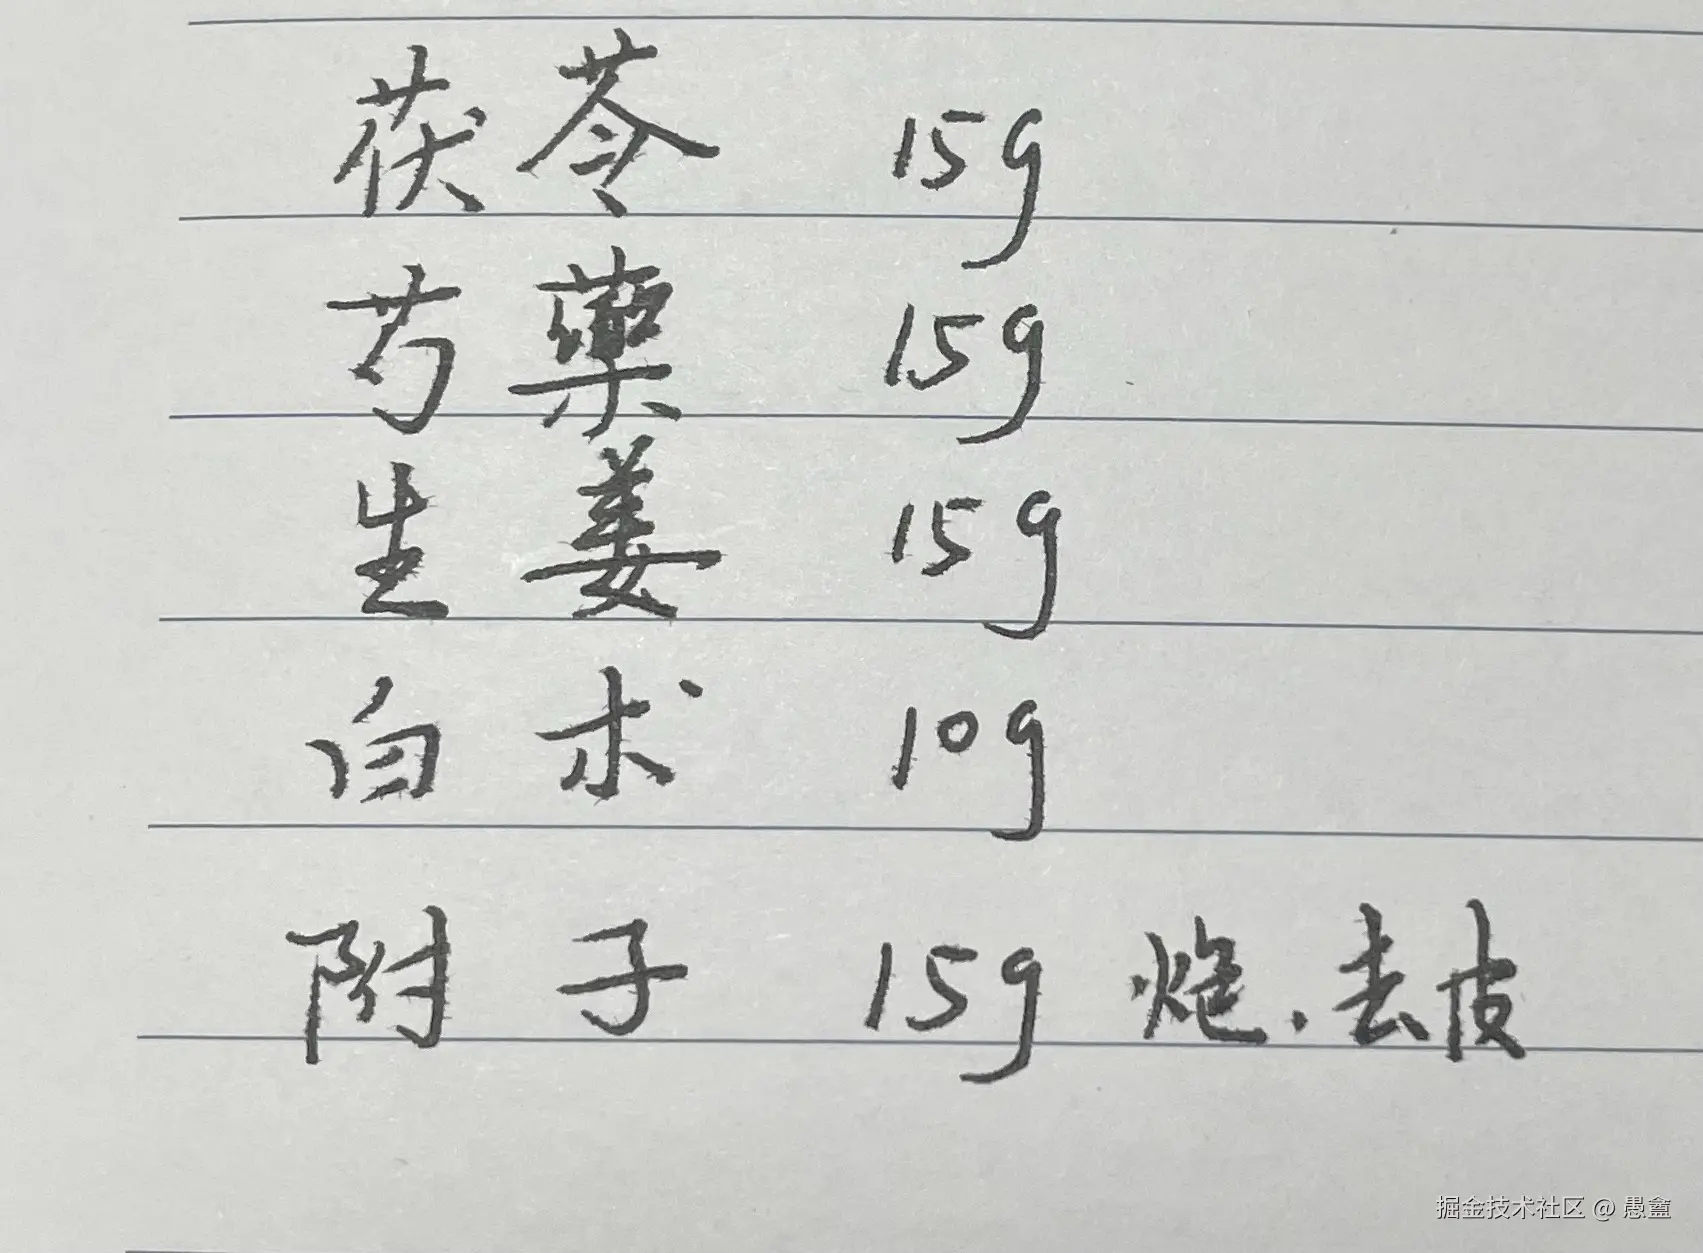 茯苓 15g
芍藥 15g
生姜 15g
白术 10g
附子 15g 炮.去皮
掘金技术社区 @ 愚盫